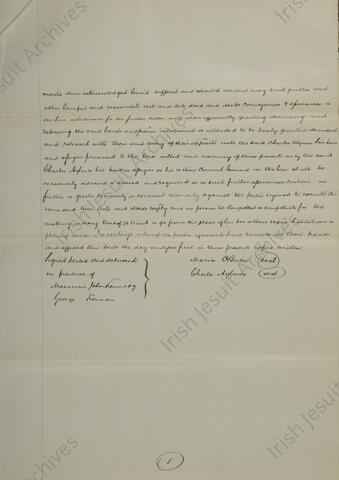 made done acknowledged levied suffered and executed all and every such further and
other lawful and reasonable act and acts deed and deeds conveyances & assurances in
the law whatsoever for the further better and more effectually granting demising and
releasing the said lands and premises mentioned or intended to be hereby granted demised
and released with their and every of their appurts unto the said Charles Aylmer his heirs
and assigns pursuant to the true intent and meaning of these presents as by the said
Charles Aylmer his heirs or assigns or his or their Counsel learned in the law shall be
reasonably advised devised and required so as such further assurances contain no
further or general warranty or covenant than only against the parties required to execute the
same and their acts and deeds only and so no person be compelled or compellable for the
making or doing thereof to travel or go from the place of his or their respive habitations or
places
In witness whereof the parties aforesaid have hereunto set their hands
and affixed their seals the day and year first in these presents before written
Signed sealed and delivered
in presence of
Maria O'Brien seal
Charles Aylmer seal
John Kennedy
George Tiernan
5
Irish Jesuit Archives
Irish Jesuit Archives
Irish Jesuit Archives
Irish Jesuit Archives